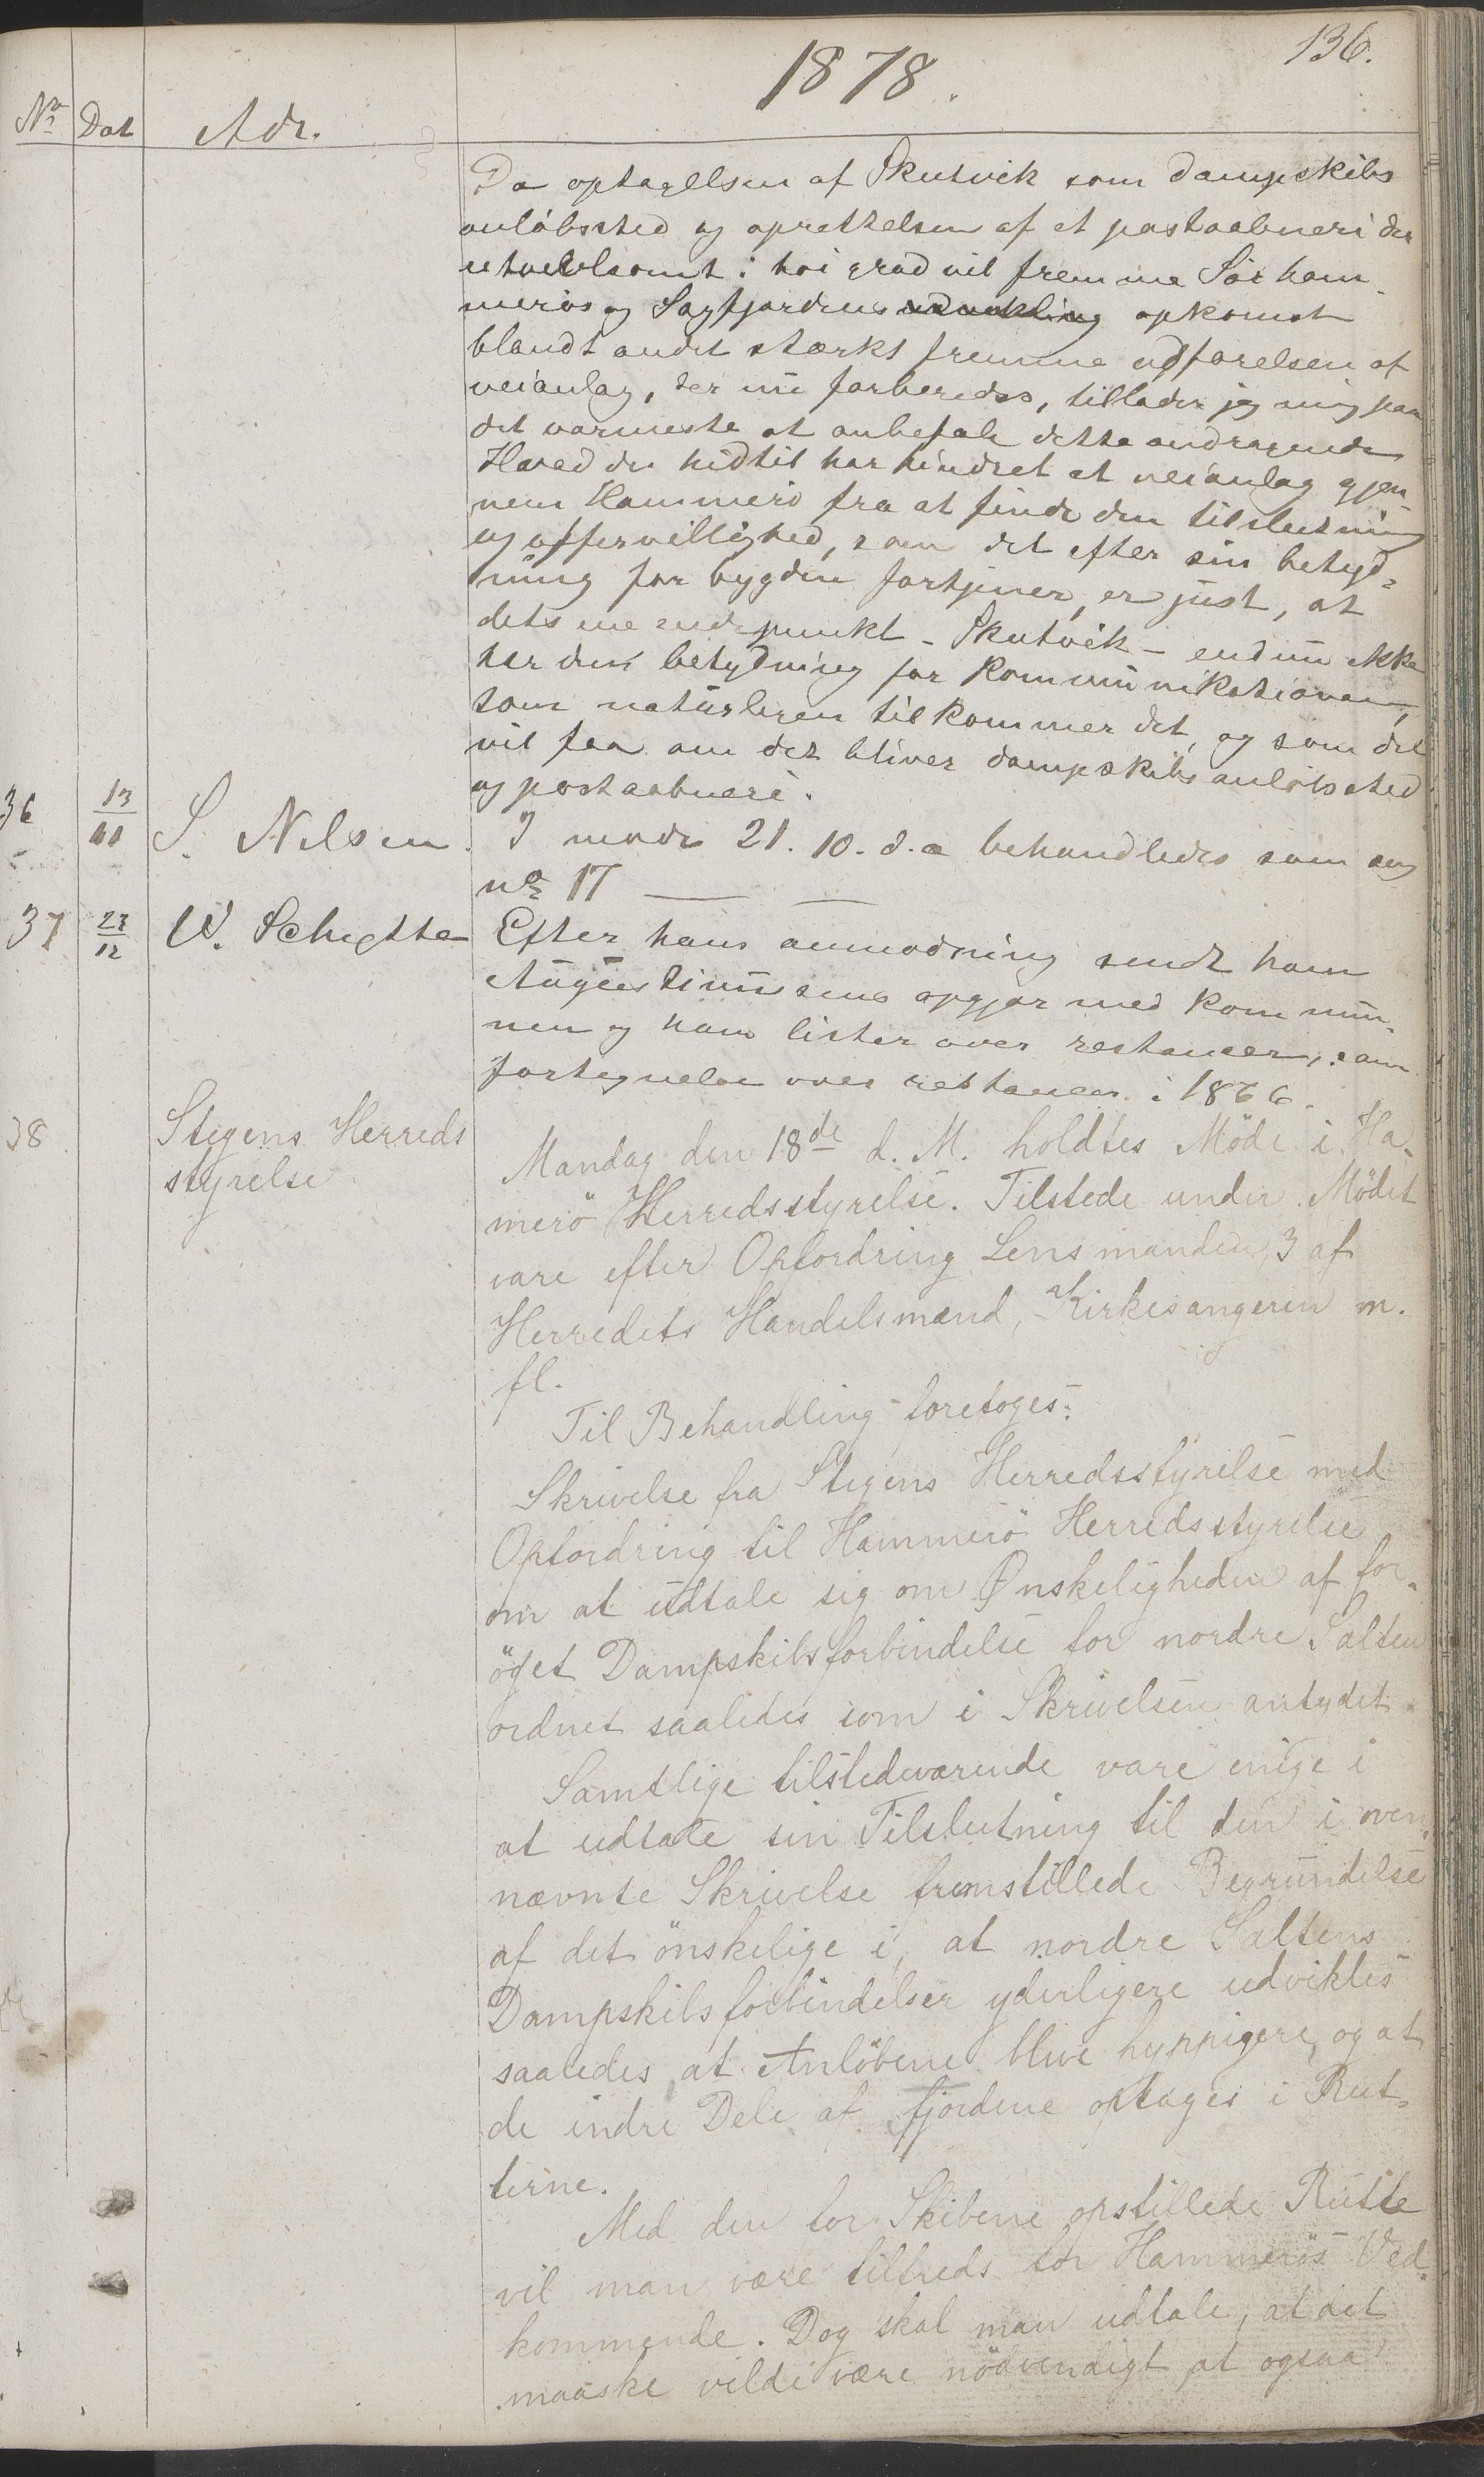 136.
1878.
No Dat Adr.
Da optagelsen af Skutvik som dampskibs
anløbssted og oprettelsen af et postaabneri der
utvivlsomt i høi grad vil fremme Sør ham-
merøs og Sagfjordens udvikling opkomst
blandt andet stærkt fremme udførelsen af
veianlæg, der nu forberedes, tillader jeg mig paa
det varmeste at anbefale dette andragende
Hvad der hidtil har hindret et veianlæg gjen-
nem Hammerø fra at finde den tilslutning
og offervillighed, som det efter sin betyd-
ning for bygden fortjener, er just, at
dets ene endepunkt - Skutvik - endnu ikke
har den betydning for kommunikationen,
som naturligen tilkommer det, og som det
vil faa om det bliver dampskibsanløbssted
og postaabneri.
36 13/11 S. Nilsen. I møde 21. 10. d.a behandledes som sag
no 17
37 23/12 W. Schytte Efter hans anmodning sendt ham
Augustinussens opgjør med kommu-
nen og ham lister over restancer, sam
fortegnelse over restancer i 1866.
38 Stegens Herreds
styrelse
Mandag den 18de d. M. holdtes Møde i Ha-
merö Herredsstyrelse. Tilstede under Mødet
vare efter Opfordring Lensmanden, 3 af
Herredets Handelsmænd, Kirkesangeren m.
fl.
Til Behandling foretoges:
Skrivelse fra Stegens Herredsstyrelse med
Opfordring til Hammerö Herredsstyrelse
om at udtale sig om Ønskeligheden af for-
öget Dampskibsforbindelse for nordre Salten
ordnet saaledes som i Skrivelsen antydet.
Samtlige tilstedeværende vare enige i
at udtale sin Tilslutning til den i oven-
nævnte Skrivelse fremstillede Begrundelse
af det önskelige i, at nordre Saltens
Dampskibsforbindelser yderligere udvikles
saaledes at Anlöbene blive hyppigere, og at
de indre Dele af Fjordene optages i Rut-
terne.
Med den for Skibene opstillede Rutte
vil man være tilfreds for Hammerös Ved-
kommende. Dog skal man udtale, at det
maaske vilde være nödvendigt at ogsaa